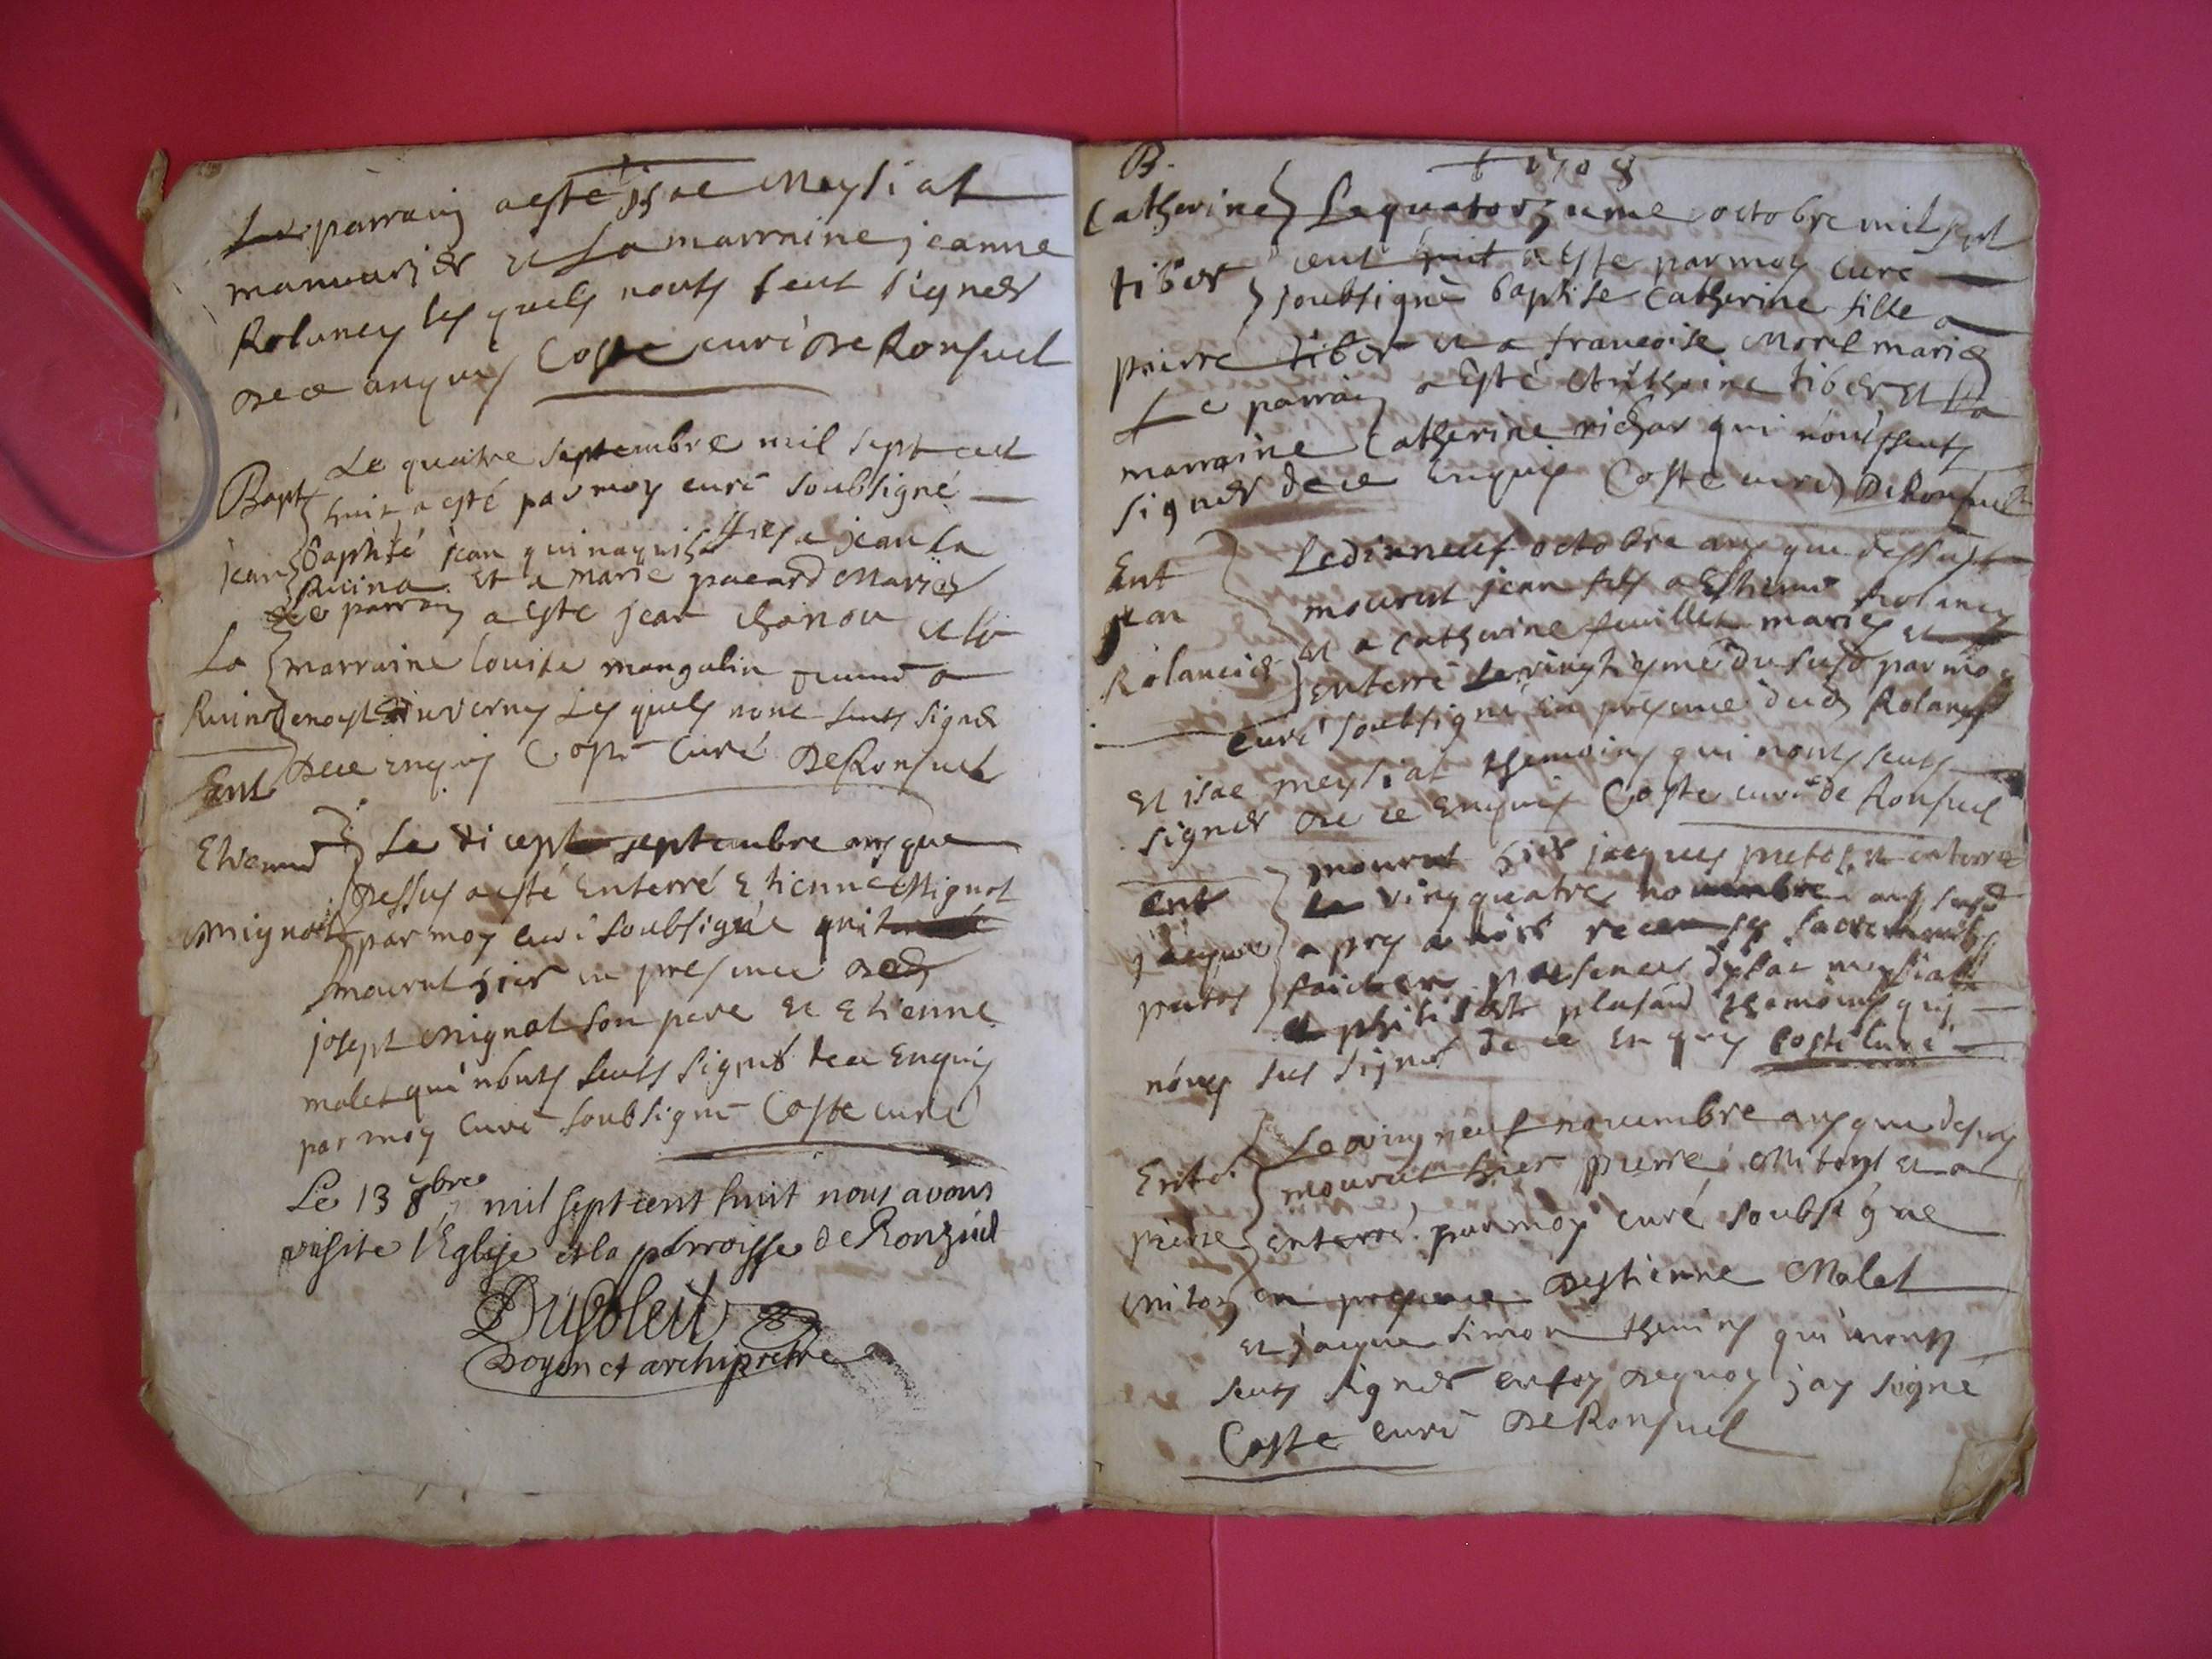 Le parrain a esté isac Meysiat
manuvrier et La marraine jeanne
Rolancy les quels nonts seut signer
de ce anquis Coste curé de Ronsuel
Le quatre septembre mil sept cent
Bapt huit a esté par moy curé soubsigné
jean baptisé jean qui naquis a jean la
Ruina et a marie pacard Mariés
Le parrain a este jean chanou et la
La marraine louise mangalin
Ruine Les quels nont seuts signer
Dece enquis Coste Curé DeRonsuel
Ent
Etienne Le dicept septembre ans que
Dessus a esté Enterré Etienne Mignot
Mignot par moy curé soubsigné
mourut hier en presence de
josept Mignot son pere et Etienne
malet qui nonts seuts signer de ce Enquis
par moy Curé soubsigné Coste curé
Le 13 8bre mil sept cent huit nous avons
visité l'Eglise et la parroisse de Ronzüel
Dusoleil
Doyen et archiprêtre
B. 1708
Catherine Le quatorzieme octobre mil sept
tiber cent huit a este par moy curé
soubsigné baptise Catherine fille a
pierre tiber et a francoise Morel mariés
Le parrain a esté Anthoine tiber et La
marraine Catherine richar qui nont seuts
signer de ce Enquis Coste curé DeRonsuel
Ent Le dixneuf octobre ans que dessus
jean mourut jean fils a Estienne Rolancy
et a catherine feuillet mariés et
Rolancier enterré le vingtiesme du susd par moy
curé soubsigné en presence dud Rolancy
et isac meysiat themoins qui nonts seuts
signer de ce Enquis Coste curé de Ronsuel
mourut hier jacques putos et enterré
ent le vingquatre novembre ans susd
jacque a pres avoir receu ses sacrements
putos faict en presence dysac meysiat
et philibert plasand themoins qui
nonts seu signer de ce Enquis Coste Curé
Le ving neuf novembre ans que desus
Ent mourut hier pierre Mitons et a
pierre enterré par moy curé soubsigné
mitons en presence Destienne Malet
et jacque simon themins qui nonts
seuts signer en foy dequoy jay signé
Coste curé DeRonsuel